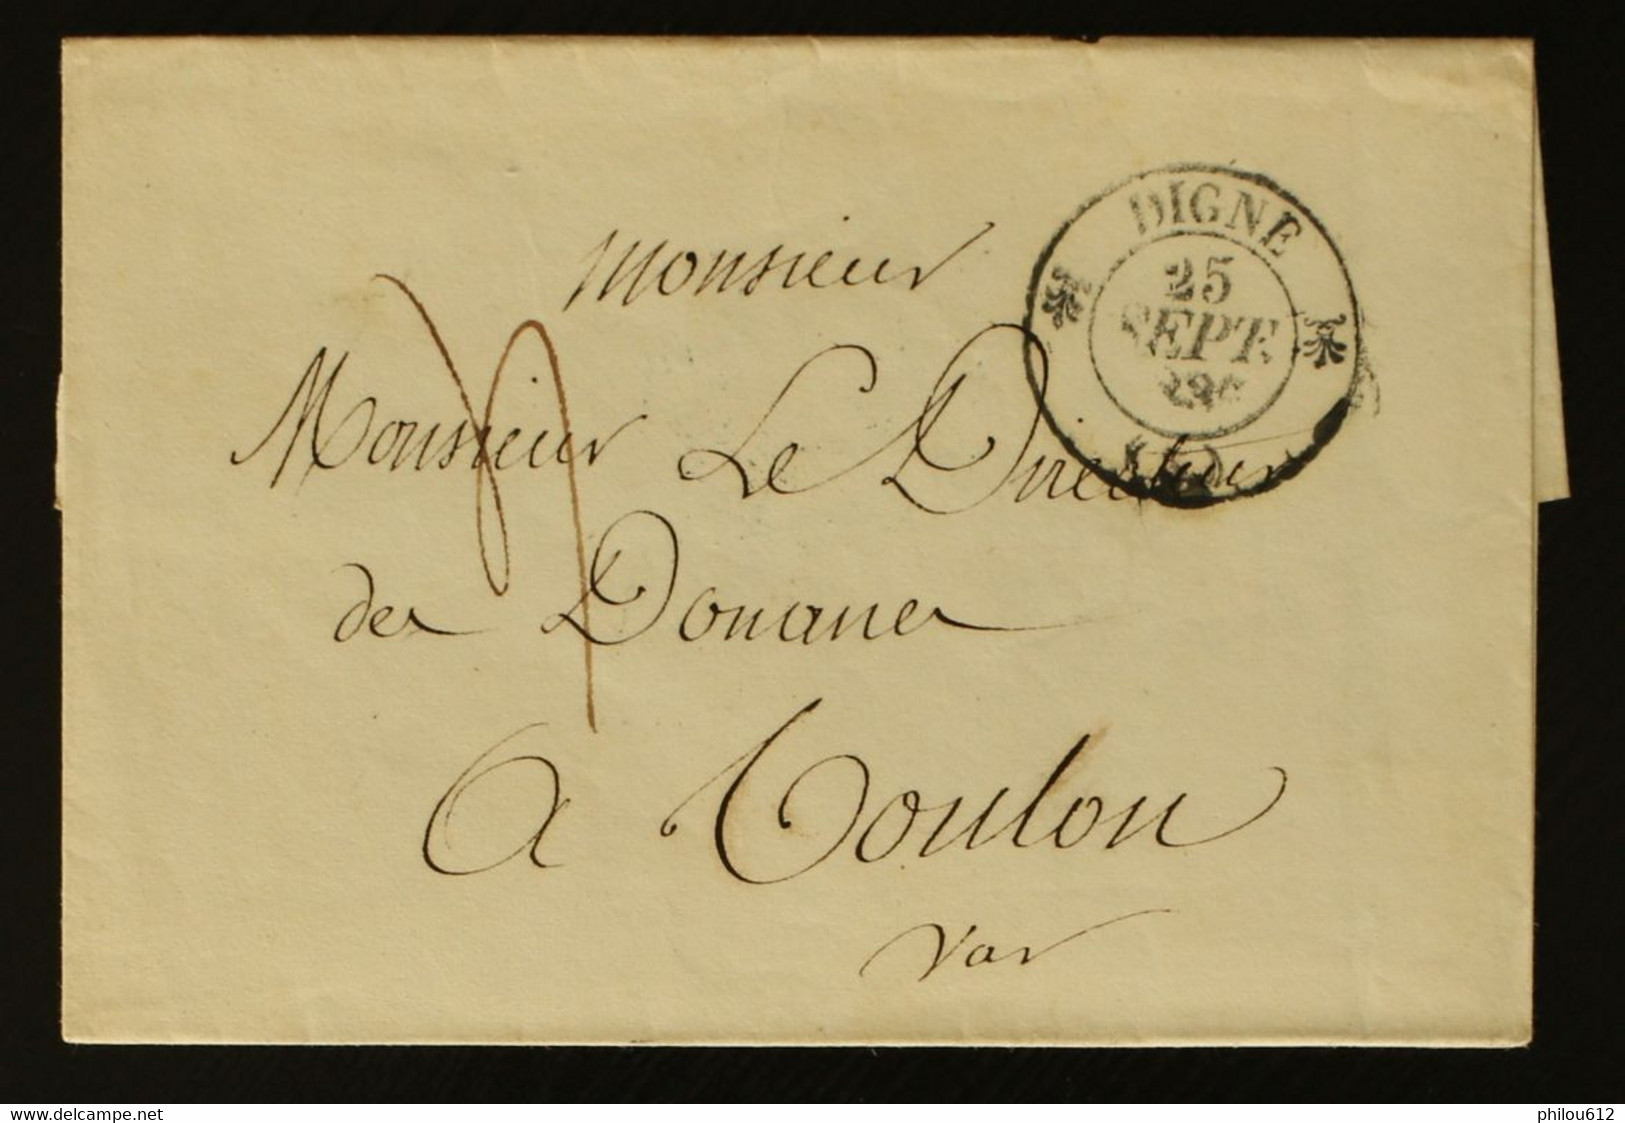 DIGNE
25
SEPT.
Monsieur
Monsieur Le Directeur
des Douanes
A Toulon
Var
delcampe.net
philou612